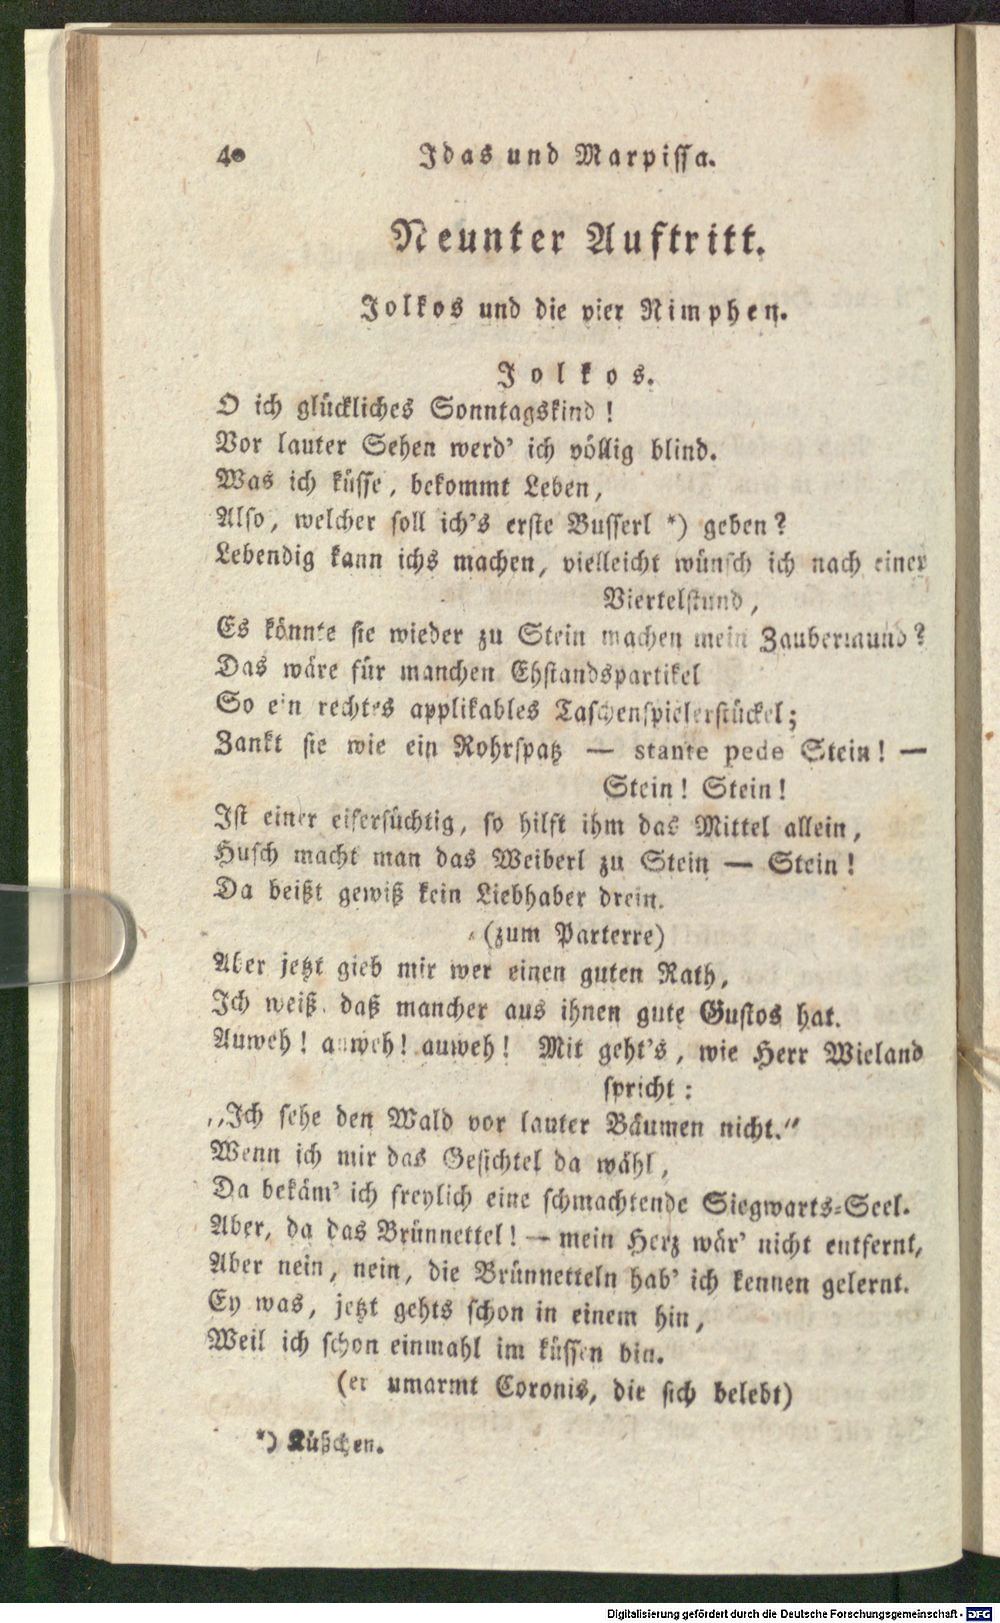 40 Idas und Marpissa.
Neunter Auftritt.
Jolkos und die vier Nimphen.
Jolkos.
O ich glückliches Sonntagskind!
Vor lauter Sehen werd' ich völlig blind.
Was ich küsse, bekommt Leben,
Also, welcher soll ich's erste Busserl *) geben?
Lebendig kann ichs machen, vielleicht wünsch ich nach einer
Viertelstund,
Es könnte sie wieder zu Stein machen mein Zaubermund?
Das wäre für manchen Ehstandspartikel
So ein rechtes applikables Taschenspielerstückel;
Zankt sie wie ein Rohrspatz — stante pede Stein! —
Stein! Stein!
Ist einer eifersüchtig, so hilft ihm das Mittel allein,
Husch macht man das Weiberl zu Stein — Stein!
Da beißt gewiß kein Liebhaber drein.
(zum Parterre)
Aber jetzt gieb mir wer einen guten Rath,
Ich weiß, daß mancher aus ihnen gute Gustos hat.
Auweh! auweh! auweh! Mit geht's, wie Herr Wieland
spricht:
„Ich sehe den Wald vor lauter Bäumen nicht.“
Wenn ich mir das Gesichtel da wähl,
Da bekäm' ich freylich eine schmachtende Siegwarts-Seel.
Aber, da das Brünnettel! — mein Herz wär' nicht entfernt,
Aber nein, nein, die Brünnetteln hab' ich kennen gelernt.
Ey was, jetzt gehts schon in einem hin,
Weil ich schon einmahl im küssen bin.
(er umarmt Coronis, die sich belebt)
*) Küßchen.
Digitalisierung gefördert durch die Deutsche Forschungsgemeinschaft - DFG